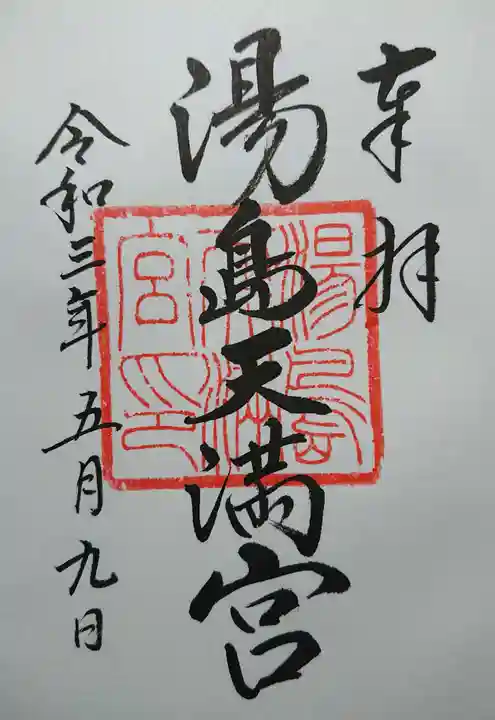 奉拝
湯島天満宮
湯島天満宮印
令和三年五月九日